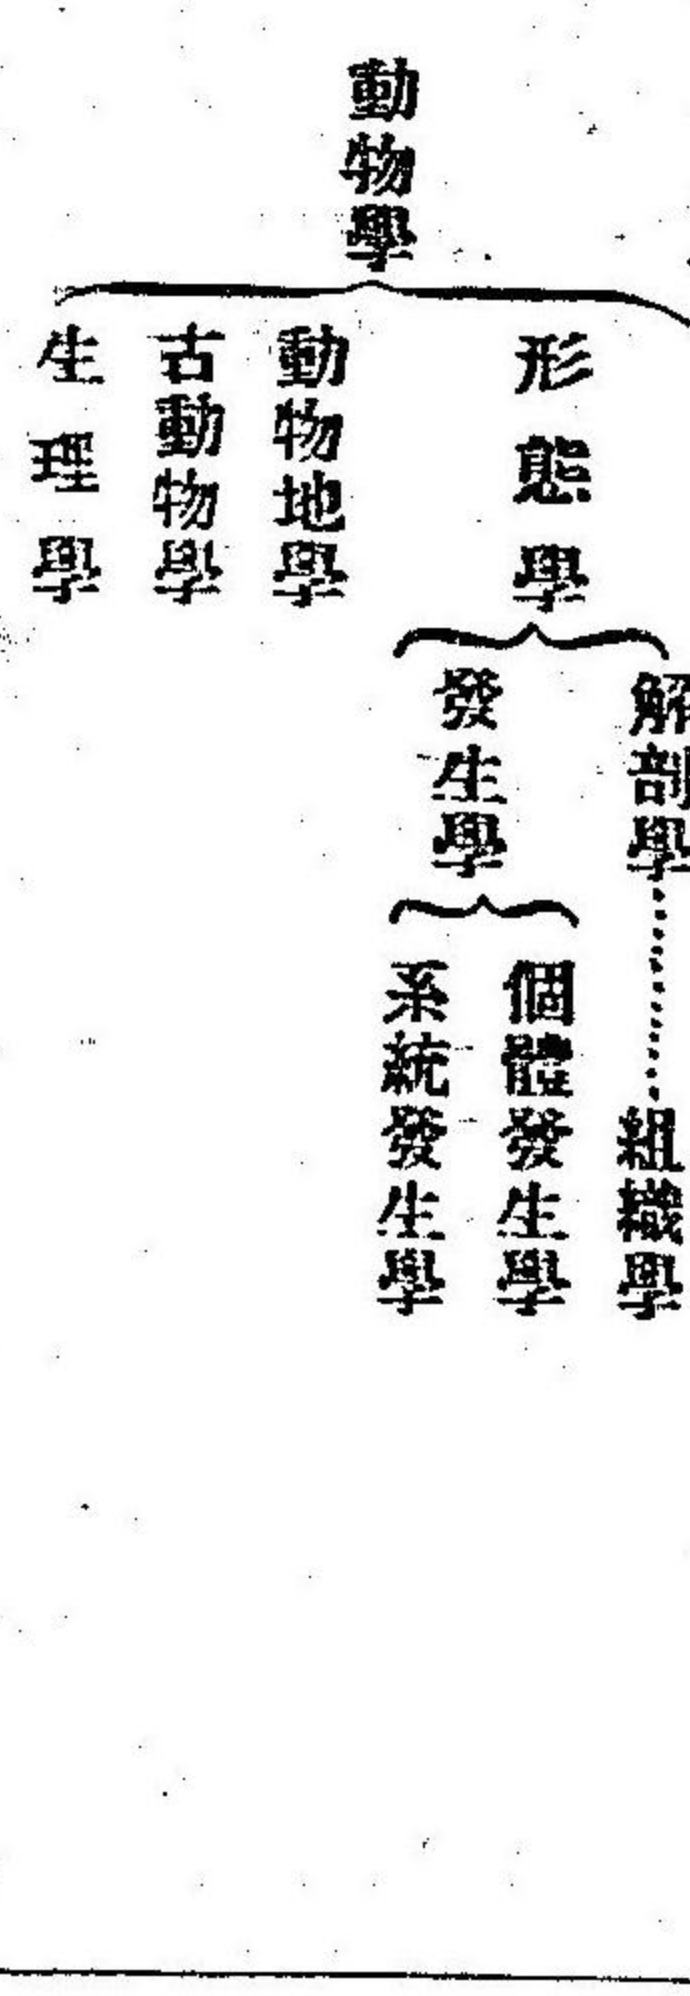 動物學
形態學
解剖學
組織學
發生學
個體發生學
系統發生學
動物地學
古動物學
生理學